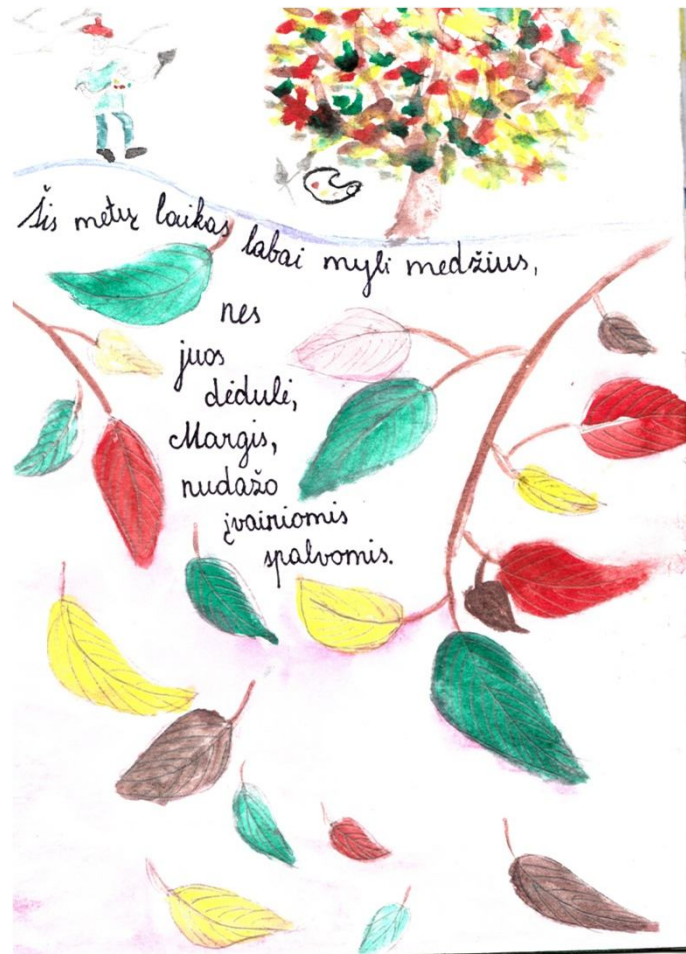 Šis metų laikas labai myli medžius,
nes
juos
dėdulė,
Margis,
nudažo
įvairiomis
spalvomis.